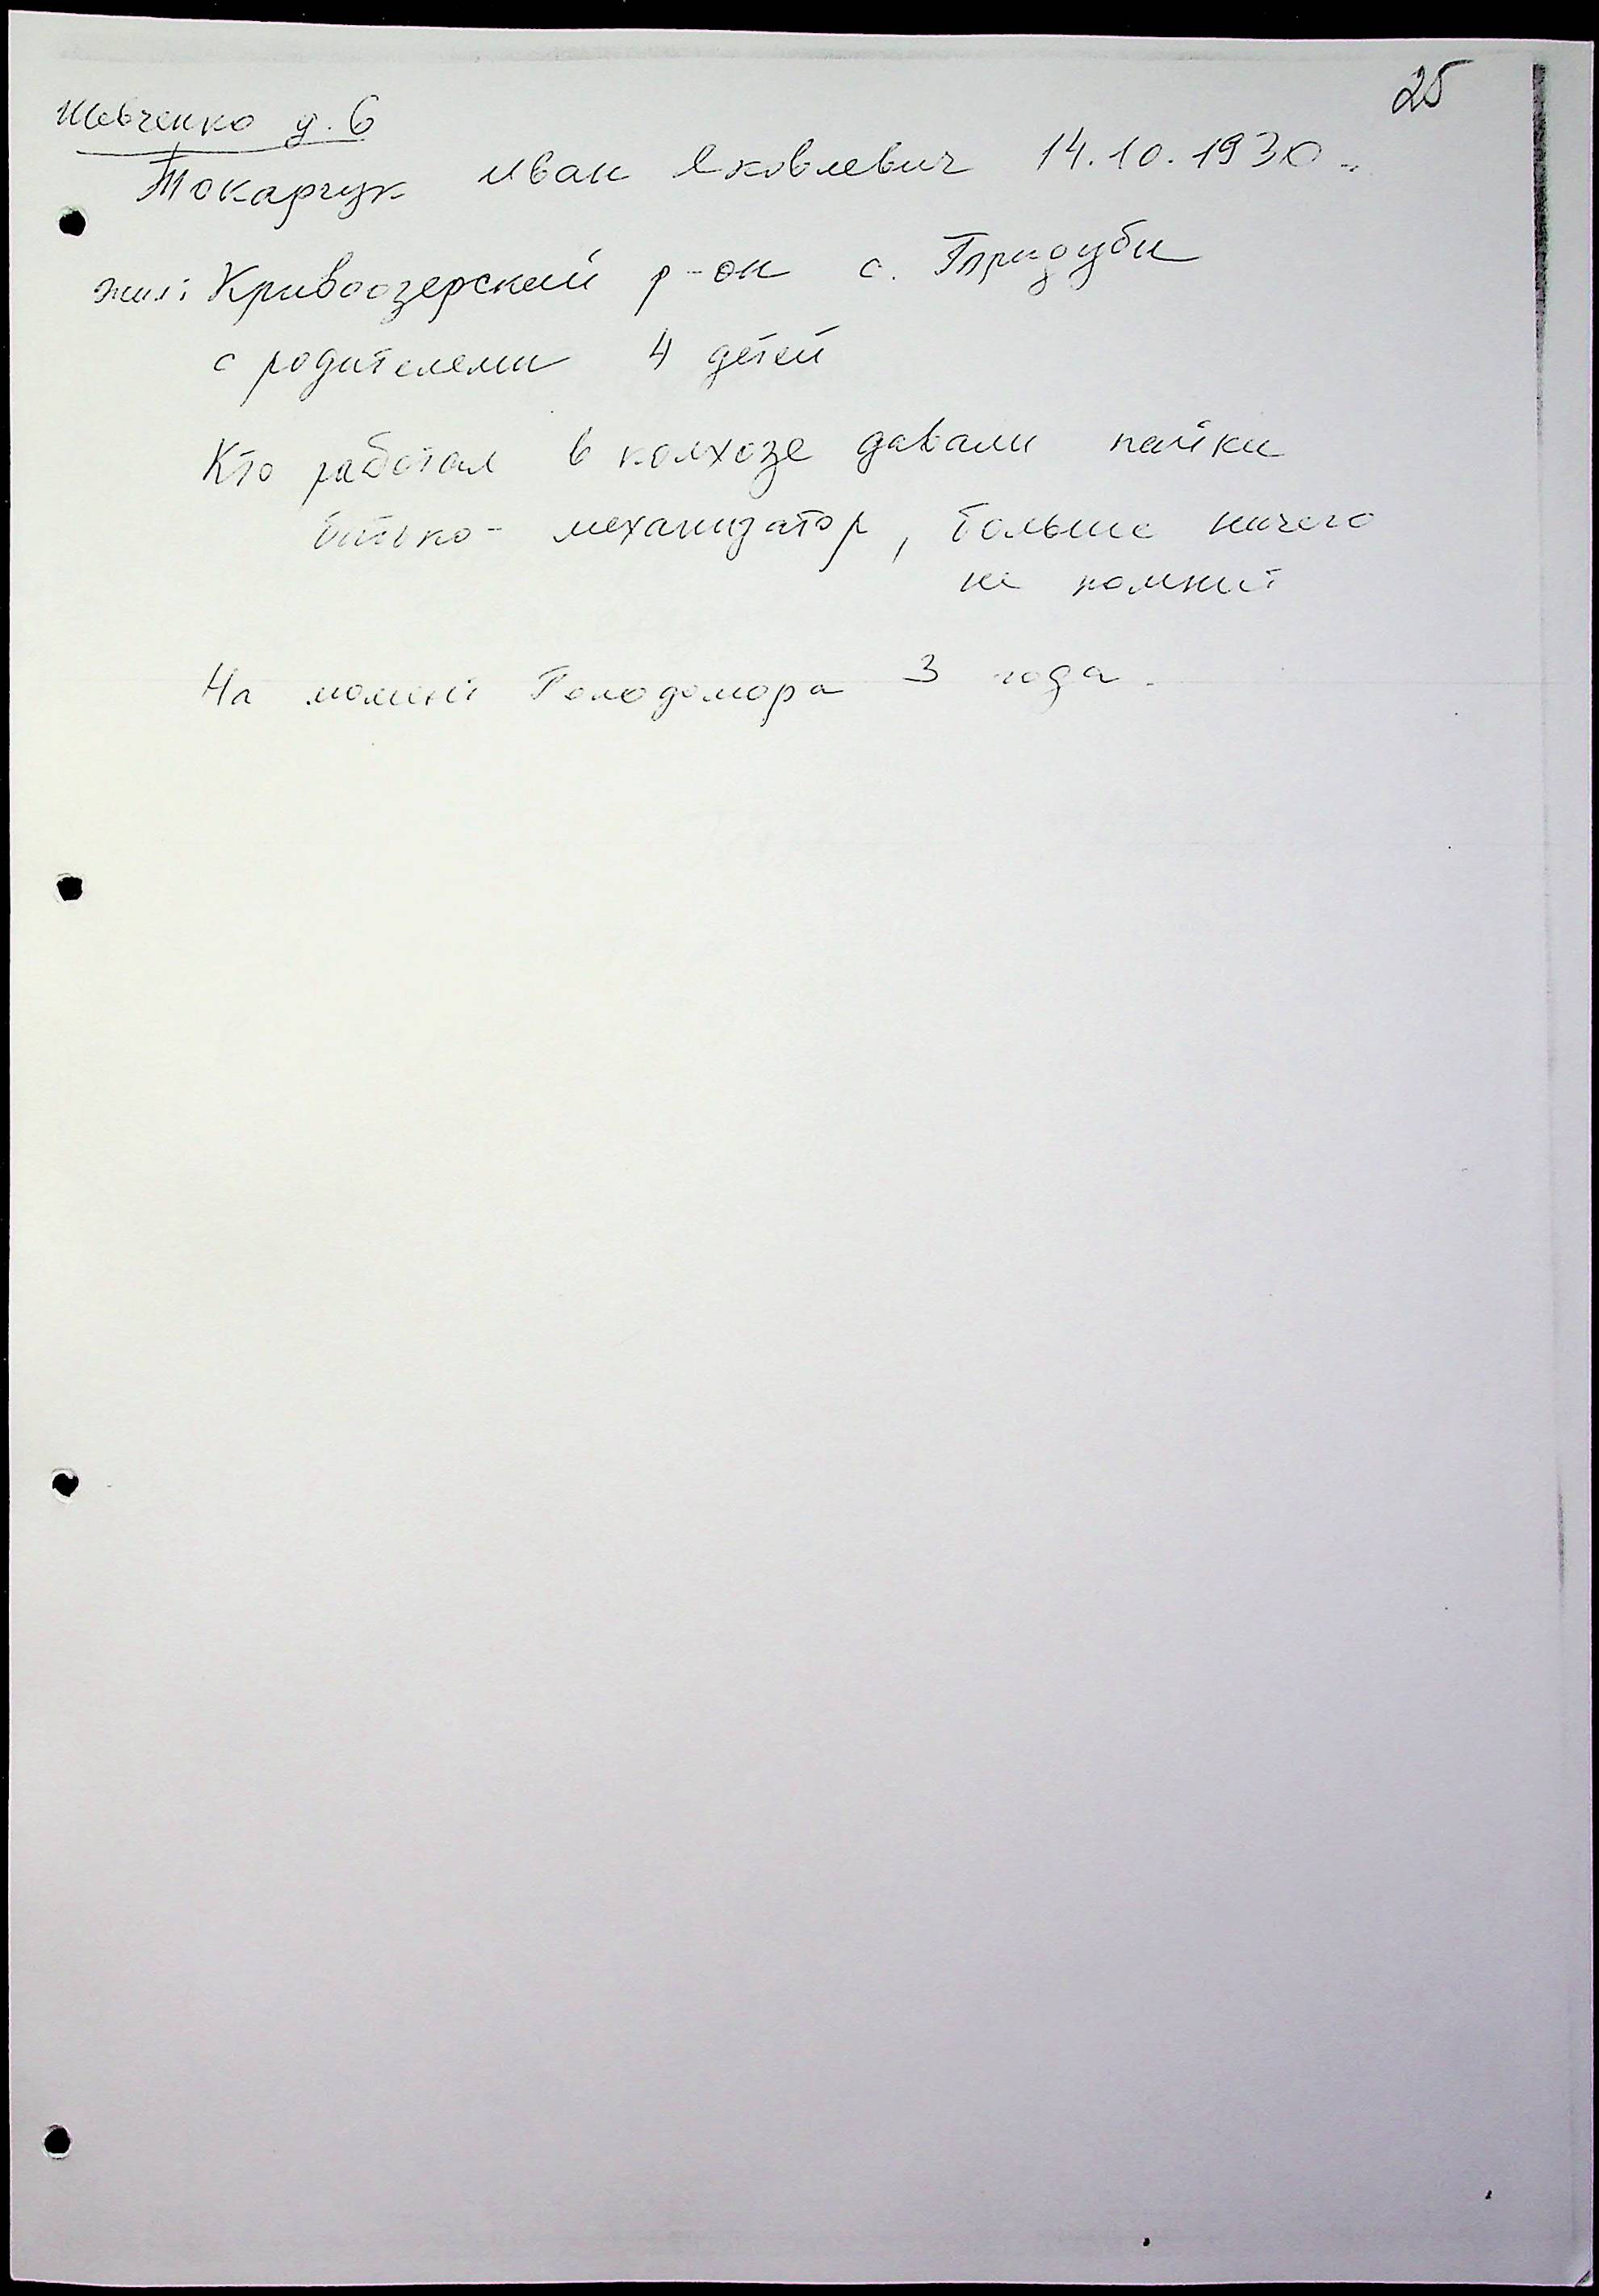 25
Шевченко д. 6
Токарчук Иван Яковлевич 14.10.1930
жил: Кривоозерский р-он с. Тридубы
с родителями 4 детей
Кто работал в колхозе давали пайки
батько - механизатор, больше ничего
не помнит
На момент Голодомора 3 года.